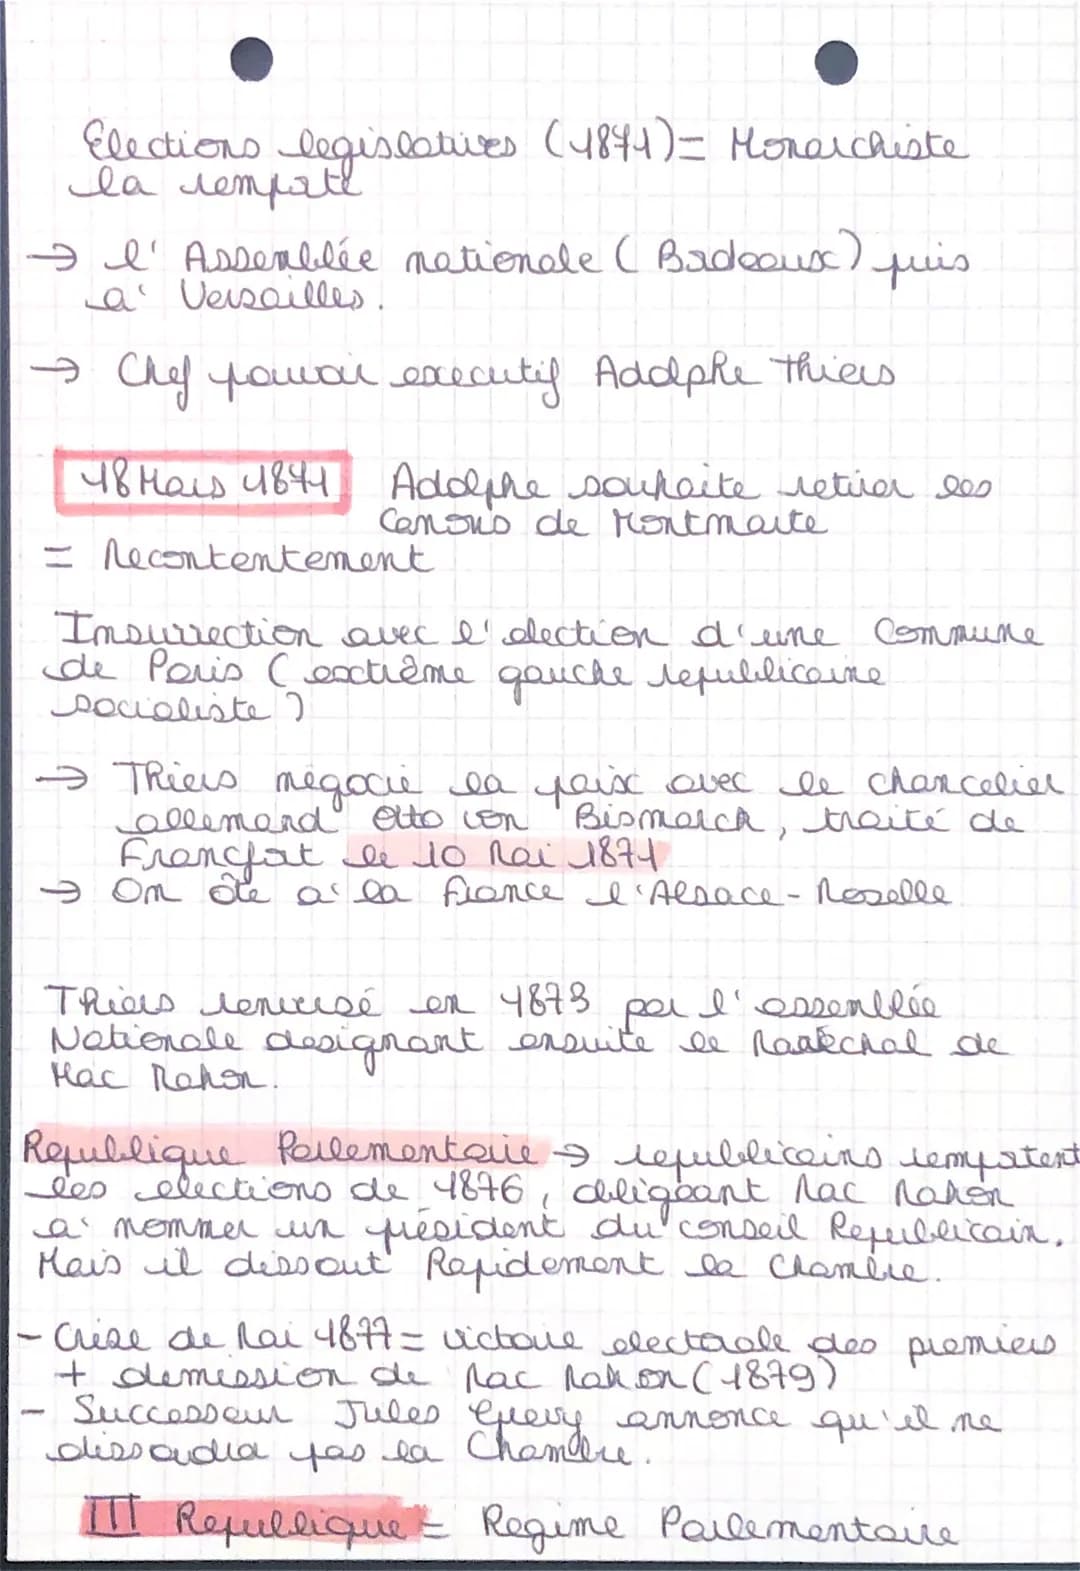 Elections legislatives (1871) = Monarchiste
la remporte
→ l'Assemblée nationale (Bordeaux) puis
à Versailles.
→ Chef pouvoir executif Adolphe Thiers
18 Mars 1871 Adolphe souhaite retirer les
Canons de Montmarte
= Mecontentement
Insurrection avec l'election d'une Commune
de Paris (extrême gauche republicaine
socialiste)
→ Thiers négocie la paix avec le chancelier
allemand Otto von Bismarck, traité de
Francfort le 10 Mai 1871
→ On ôte à la france l'Alsace-Moselle
Thiers renversé en 1873 par l'assemblée
Nationale designant ensuite le Maréchal de
Mac Mahon.
Republique Parlementaire → republicains remportent
les elections de 1876, obligeant Mac Mahon
à nommer un président du conseil Republicain.
Mais il dissout Rapidement la Chambre.
- Crise de Mai 1877 = victoire electorale des premiers
+ demission de Mac Mahon (1879)
- Successeur Jules Grevy annonce qu'il ne
dissoudra pas la Chambre.
III Republique = Regime Parlementaire